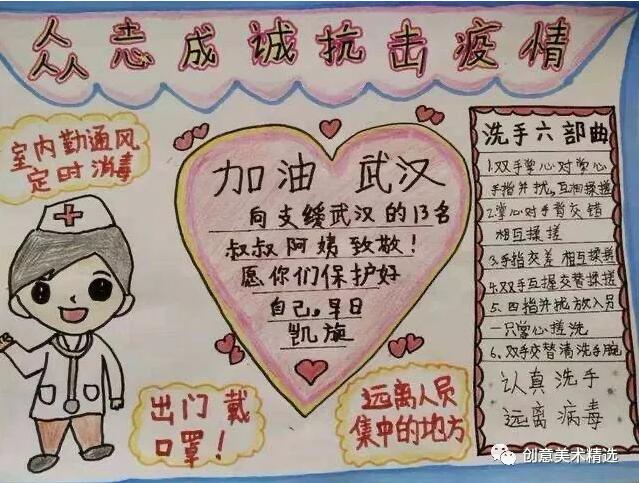 众志成诚抗击疫情
室内勤通风
定时消毒
加油 武汉
向支缓武汉的13名
叔叔阿姨致敬！
愿你们保护好
自己。早日
凯旋
出门戴
口罩！
远离人员
集中的地方
洗手六部曲
1.双手掌心对掌心
手指并拢,互相揉搓
2.掌心对手背交错
相互揉搓
3.手指交差 相互揉搓
4.双手互握交替揉搓
5、四指并拢放入另
一只掌心搓洗
6、双手交替清洗手腕
认真洗手
远离病毒
创意美术精选